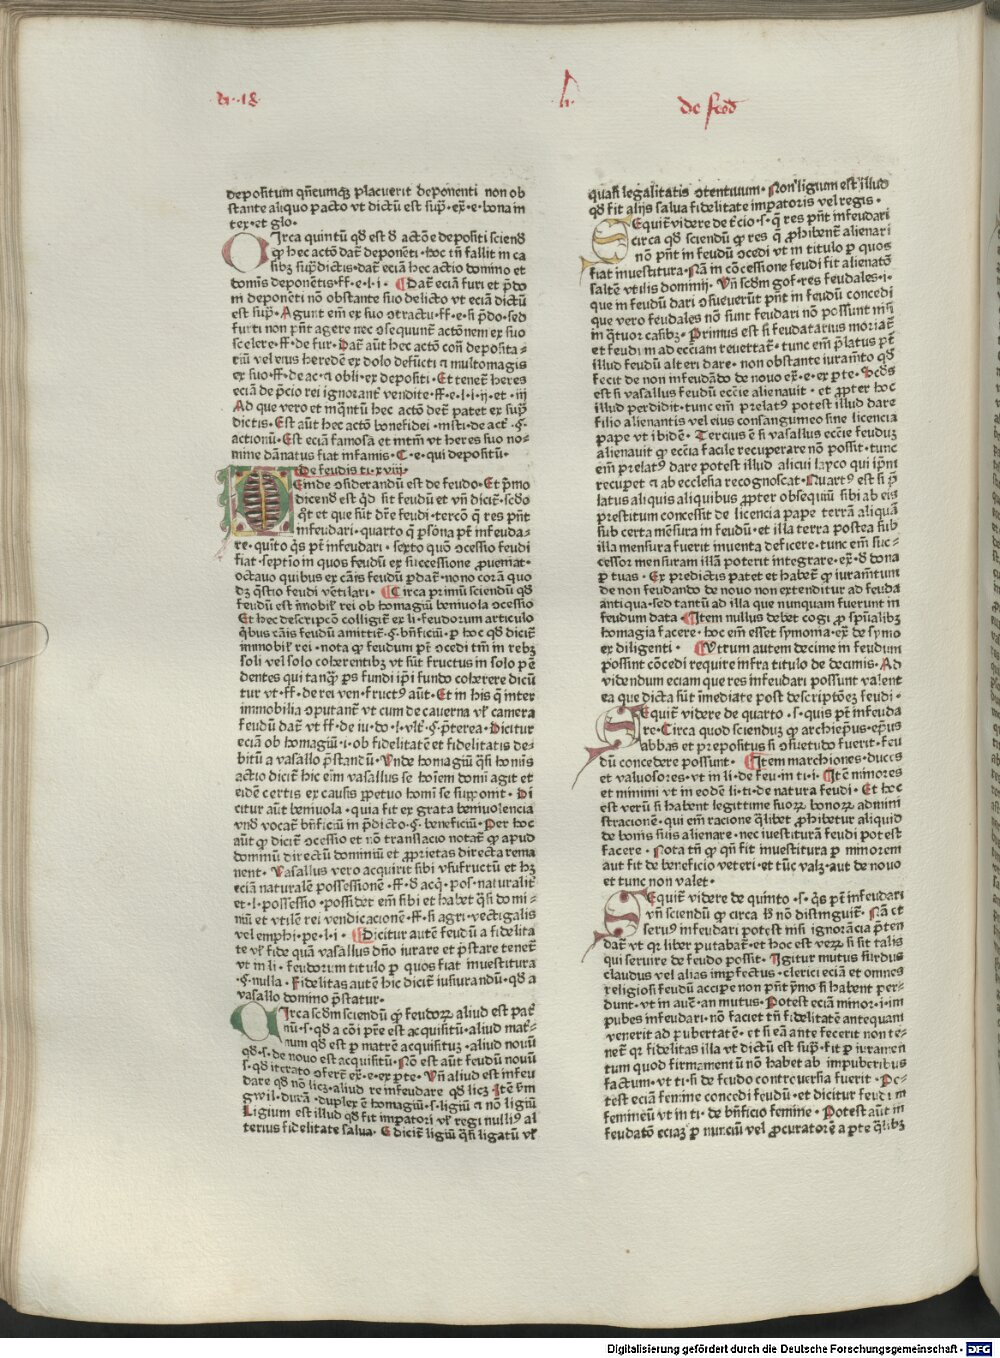 ti · 18 ·
h
de feod
depositum qñcumqꝫ placuerit deponenti non ob
stante aliquo pacto vt dictū est sup̄ · ex̄ · e · bona in
tex · et glo ·
CIrca quintū qd̄ est d̄ actōe depositi sciend̄
ꝙ hec actō dat̄ deponēti · hoc tn̄ fallit in ca
sibꝫ sup̄dictis · dat̄ eciā hec actio domino et
domīs deponētis · ff · e · l · i · Dat̄ eciā furi et p̄do
ni deponēti nō obstante suo delicto vt eciā dictū
est sup̄ · Agunt em̄ ex suo ꝯtractu · ff · e · si p̄do · sed
furti non pn̄t agere nec ꝯsequunt̄ actōnem ex suo
scelere · ff · de fur · Dat̄ aūt hec actō cōtͣ deposita-
riū vel eius heredē ex dolo defūcti ⁊ multomagis
ex suo · ff · de ac · ⁊ obli · ex depositi · Et tenet̄ heres
eciā de p̄cio rei ignorant̄ vendite · ff · e · l · i · ij · et · iij
Ad que vero et inqͣntū hec actō det̄ patet ex sup̄
dictis · Est aūt hec actō bonefidei · insti · de act̄ · §·
actionū · Est eciam famosa et intm̄ vt heres suo no-
mine dānatus fiat infamis · C · e · qui depositū ·
de feudis ti · xviii ·
DEinde ꝯsiderandū est de feudo · Et pͥmo
dicend̄ est qͥd sit feudū et vn̄ dicit̄ · scd̄o
qͦt et que sūt dr̄e feudi · tercō q̄ res pn̄t
infeudari · quarto q̄ psōna pt̄ infeuda-
re · quīto qͥs pt̄ infeudari · sexto quō ꝯcessio feudi
fiat · septīo in quos feudū ex successione ꝓueniat ·
octauo quibus ex cāis feudū ꝑdat̄ · nono corā quo
dꝫ qͥstio feudi vētilari · Circa primū sciendū qd̄
feudū est īmobil̄ rei ob homagiū beniuola ꝯcessio
Et hec descripcō colligit̄ ex li · feudorum articulo
qͥbus cāis feudū amittit̄ · §· bn̄ficiū · ꝑ hoc qd̄ dicit̄
immobil̄ rei · nota ꝙ feudum pt̄ ꝯcedi tm̄ in rebꝫ
soli vel solo coherentibꝫ vt sūt fructus in solo pē
dentes qui tanqͣꝫ ꝑs fundi ip̄i fundo coherere dicū
tur vt · ff · de rei ven · fructꝰ aūt · Et in his q̄ inter
immobilia ꝯputant̄ vt cum de cauerna vl̄ camera
feudū dat̄ vt ff · de iu · do · l · vlt̄ · §· p̄terea · Dicitur
eciā ob homagiū · i · ob fidelitatē et fidelitatis de-
bitū a vasallo p̄standū · Vnde homagiū qͣsi homīs
actio dicit̄ hic eīm vasallus se hoīem domī agit et
eidē certis ex causis ꝑpetuo homī se supponit · Di
citur aūt beniuola · quia fit ex grata beniuolencia
vnd̄ vocat̄ bn̄ficiū in p̄dicto · §· beneficiū · Per hoc
aūt ꝙ dicit̄ ꝯcessio et nō translacio notat̄ ꝙ apud
dominū directū dominiū et ꝓprietas directa rema
nent · Vasallus vero acquirit sibi vsufructū et hꝫ
eciā naturalē possessionē · ff · d̄ acq̄ · pos · naturalit̄
et · l · possessio · possidet em̄ sibi et habet qͣsi domi-
niū et vtilē rei vendicacionē · ff · si agri · vectigalis
vel emphi · pe · l · i · Dicitur autē feudū a fidelita
te vl̄ fide quā vasallus dn̄o iurare et p̄stare tenet̄
vt in li · feudorum titulo ꝑ quos fiat inuestitura
§· nulla · Fidelitas autē hic dicit̄ iusiurandū · qd̄ a
vasallo domino p̄statur ·
CIrca scd̄m sciendū ꝙ feudoꝝ aliud est pat̄
nū · s · qd̄ a cōi pr̄e est acquisitū · aliud mat̄-
num qd̄ est ꝑ matrē acquisituꝫ · aliud nouū
qd̄ · s · de nouo est acquisitū · Nō est aūt feudū nouū
s · qd̄ iterato ꝯfert̄ ex̄ · e · ex ꝑte · Vn̄ aliud est infeu
dare qd̄ nō licꝫ · aliud reinfeudare qd̄ licꝫ · Itē s̄m
gwil · durā · duplex ē homagiū · s · ligiū ⁊ nō ligiū
Ligium est illud qd̄ fit impatori vl̄ regi nulliꝰ al
terius fidelitate salua · E dicit̄ ligiū qͣsi ligatū vl̄
quasi legalitatis ꝯtentiuum · Non ligium est illud
qd̄ fit alijs salua fidelitate impatoris vel regis ·
SEquit̄ videre de t̄cio · s · q̄ res pn̄t infeudari
circa qd̄ sciendū ꝙ res q̄ ꝓhibent̄ alienari
nō pn̄t in feudū ꝯcedi vt in titulo ꝑ quos
fiat inuestitura · Nā in cōcessione feudi fit alienatō
saltē vtilis dominij · Vn̄ scd̄m gof · res feudales · i ·
que in feudū dari ꝯsueuerūt pn̄t in feudū concedi
que vero feudales nō sunt feudari nō possunt nisi
in qͣtuor casibꝫ · Primus est si feudatarius moriat̄
et feudū ad ecciam reuertat̄ · tunc em̄ p̄latus pt̄
illud feudū alteri dare · non obstante iuramēto qd̄
fecit de non infeudādo de nouo ex̄ · e · ex ꝑte · Scd̄s
est si vasallus feudū eccīe alienauit · et ꝓpter hoc
illud perdidit · tunc em̄ prelatꝰ potest illud dare
filio alienantis vel eius consanguineo sine licencia
pape vt ibidē · Tercius ē si vasallus eccīe feuduꝫ
alienauit ꝙ eccīa facile recuperare nō possit · tunc
em̄ prelatꝰ dare potest illud alicui layco qui ip̄m
recupet ⁊ ab ecclesia recognoscat · Quartꝰ est si p̄
latus aliquis aliquibus ꝓpter obsequiū sibi ab eis
prestitum concessit de licencia pape terrā aliquā
sub certa mēsura in feudū · et illa terra postea sub
illa mensura fuerit inuenta deficere · tunc em̄ suc-
cessor mensuram illā poterit integrare · ex̄ · d̄ dona
ꝑ tuas · Ex predictis patet et habet̄ ꝙ iuramētum
de non feudando de nouo non extenditur ad feuda
antiqua · sed tantū ad illa que nunquam fuerunt in
feudum data · Item nullus debet cogi ꝓ spūalibꝫ
homagia facere · hoc em̄ esset symonia · ex̄ de symo
ex diligenti · Vtrum autem decime in feudum
possint cōcedi require infra titulo de decimis · Ad
videndum eciam que res infeudari possunt valent
ea que dicta sūt īmediate post descriptōeꝫ feudi ·
SEquit̄ videre de quarto · s · quis pt̄ infeuda
re · Circa quod sciendūꝫ ꝙ archiep̄us · ep̄us
abbas et prepositus si ꝯsuetudo fuerit · feu
dū concedere possunt · Item marchiones · duces
et valuosores · vt in li · de feu · in ti · i · Itē minores
et minimi vt in eodē li · ti · de natura feudi · Et hoc
est verū si habent legittime suoꝝ bonoꝝ admini
stracionē · qui em̄ racione qͣlibet ꝓhibetur aliquid
de bonis suis alienare · nec iuestiturā feudi potest
facere · Nota tn̄ ꝙ qn̄ fit inuestitura ꝑ minorem
aut fit de beneficio veteri · et tūc valꝫ · aut de nouo
et tunc non valet ·
SEquit̄ videre de quinto · s · qͥs pt̄ infeudari
vn̄ sciendū ꝙ circa h̄ nō distinguit̄ · Nā et
seruꝰ infeudari potest nisi ignorācia p̄ten
dat̄ vt qꝛ liber putabat̄ · et hoc est veꝝ si sit talis
qui seruire de feudo possit · Igitur mutus surdus
claudus vel alias imꝑfectus · clerici eciam et omnes
religiosi feudū accipe non pn̄t pͥmo si habent per-
dunt · vt in auē · an mutus · Potest eciā minor · i · im
pubes infeudari · nō faciet tn̄ fidelitatē antequam
venerit ad ꝑubertatē · et si eā ante fecerit non te-
net̄ qꝛ fidelitas illa vt dictū est sup̄ · fit ꝑ iuramen
tum quod firmamentū nō habet ab impuberibus
factum · vt ti · si de feudo controuersia fuerit · Po-
test eciā femine concedi feudū · et dicitur feudum
femineū vt in ti · de bn̄ficio femine · Potest aūt in
feudatō eciaꝫ ꝑ nunciū vel ꝓcuratorē a ꝑte qͣlibꝫ
Digitalisierung gefördert durch die Deutsche Forschungsgemeinschaft - DFG